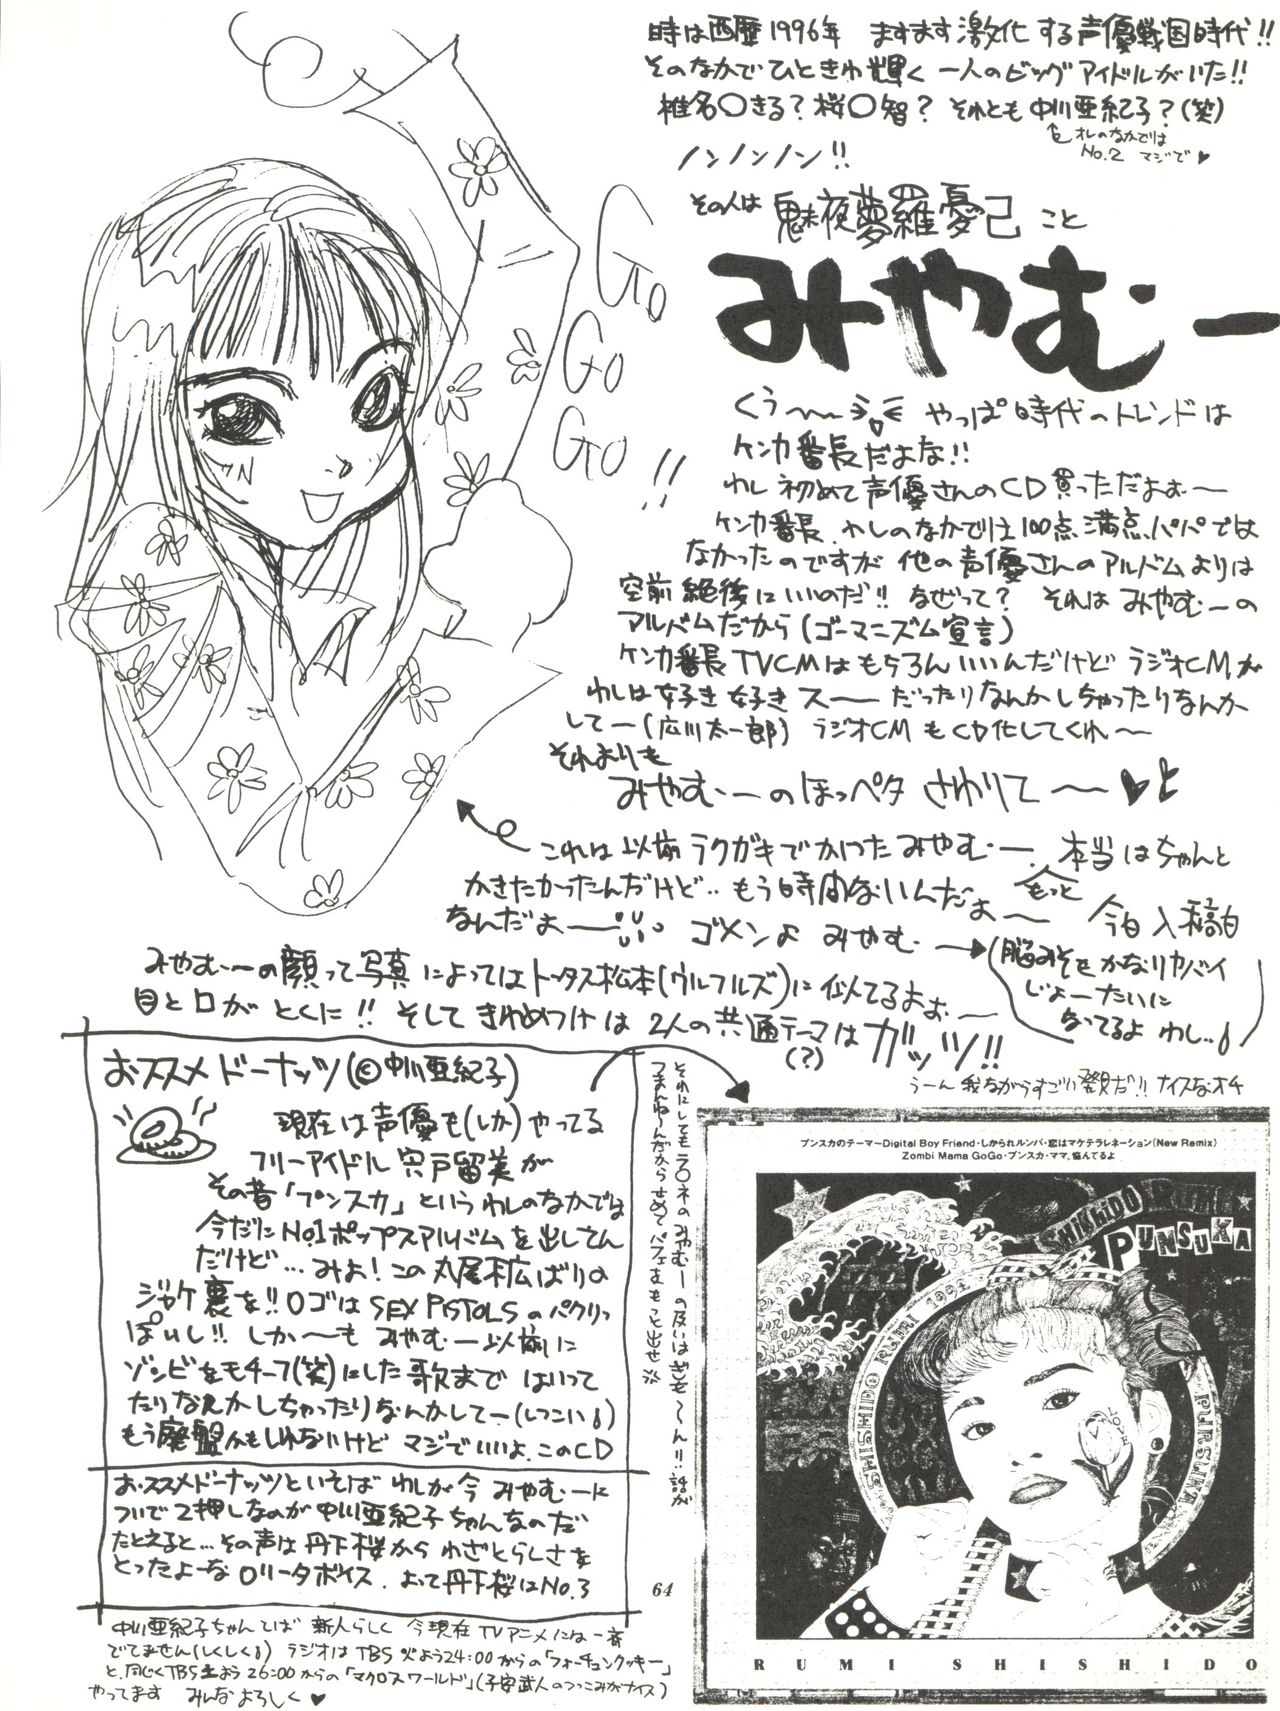 時は西暦1996年 ますます激化する声優戦国時代!!
そのなかでひときわ輝く一人のビッグアイドルがいた!!
椎名〇きる?桜〇智? それとも中川亜紀子?(笑)
↑オレのなかでは
No.2 マジで♥
ノンノンノン!!
その人は 魅夜夢羅憂己 こと
みやむー
Go
Go
Go
!!
くう〜〜 やっぱ時代のトレンドは
ケンカ番長だよな!!
わし初めて声優さんのCD買っただよお〜
ケンカ番長、わしのなかでは100点満点パパでは
なかったのですが他の声優さんのアルバムよりは
空前絶後にいいのだ!!なぜって? それはみやむーの
アルバムだから(ゴーマニズム宣言)
ケンカ番長TVCMはもちろんいいんだけどラジオCMが
わしは好き好きス〜〜だったりなんかしちゃったりなんか
してー(広川太一郎) ラジオCMもCD化してくれ〜
それよりも
みやむーのほっペタ さわりて〜〜♥
これは以前ラクガキでかいたみやむー、本当はちゃんと
かきたかったんだけど‥もう時間ないんだよ〜
もっと
なんだよ〜 ゴメンよ みやむー
今日入稿日
(脳みそもかなりヤバイ
じょーたいに
なってるよ わし‥)
みやむーの顔って写真によってはトータス松本(ウルフルズ)に似てるよお〜
目と口がとくに!!そしてきわめつけは2人の共通テーマはガッツ!!
(?)
うーん我ながらすごい発見だ!!ナイスなオチ
それにしてもラ〇ネのみやむーの扱いはぎも〜〜ん!!‥話が
つまんね〜んだからせめてパフェをもっと出せ
おススメドーナッツ(©中川亜紀子)
現在は声優も(しか)やってる
フリーアイドル宍戸留美が
その昔「プンスカ」というわしのなかでは
今だにNo.1ポップスアルバムを出してん
だけど…みよ!この丸尾末広ばりの
ジャケ裏を!!ロゴはSEX PISTOLSのパクリっ
ぽいし!!しか〜もみやむー以前に
ゾンビをモチーフ(笑)にした歌まではいって
たりなんかしちゃったりなんかしてー(しつこい)
もう廃盤かもしれないけどマジでいいよ、このCD
おススメドーナッツといえばわしが今みやむーに
ついで2押しなのが中川亜紀子ちゃんなのだ
たとえると…その声は丹下桜からわざとらしさを
とったよーなロリータボイス、よって丹下桜はNo.3
中川亜紀子ちゃんてば 新人らしく 今現在TVアニメには一斉
でてません(しくしく) ラジオはTBS火よう24:00からの「フォーチュンクッキー」
と、同じくTBS土よう26:00からの「マクロスワールド」(子安武人のつっこみがナイス)
やってます みんなよろしく♥
64
プンスカのテーマ〜Digital Boy Friend・しかられルンバ・恋はマケテラレネーション(New Remix)
Zombi Mama GoGo・プンスカ・ママ、悩んでるよ
SHISHIDO RUMI
PUNSUKA
SHISHIDO RUMI 1991
PUNSUKA
LOVE
RUMI SHISHIDO